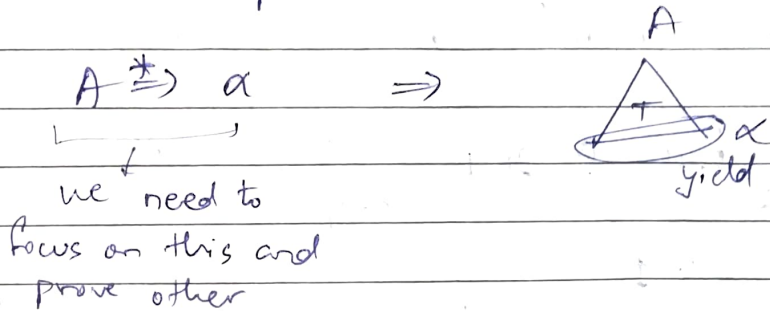 A
A *⇒ α ⇒ T α
yield
we need to
focus on this and
prove other